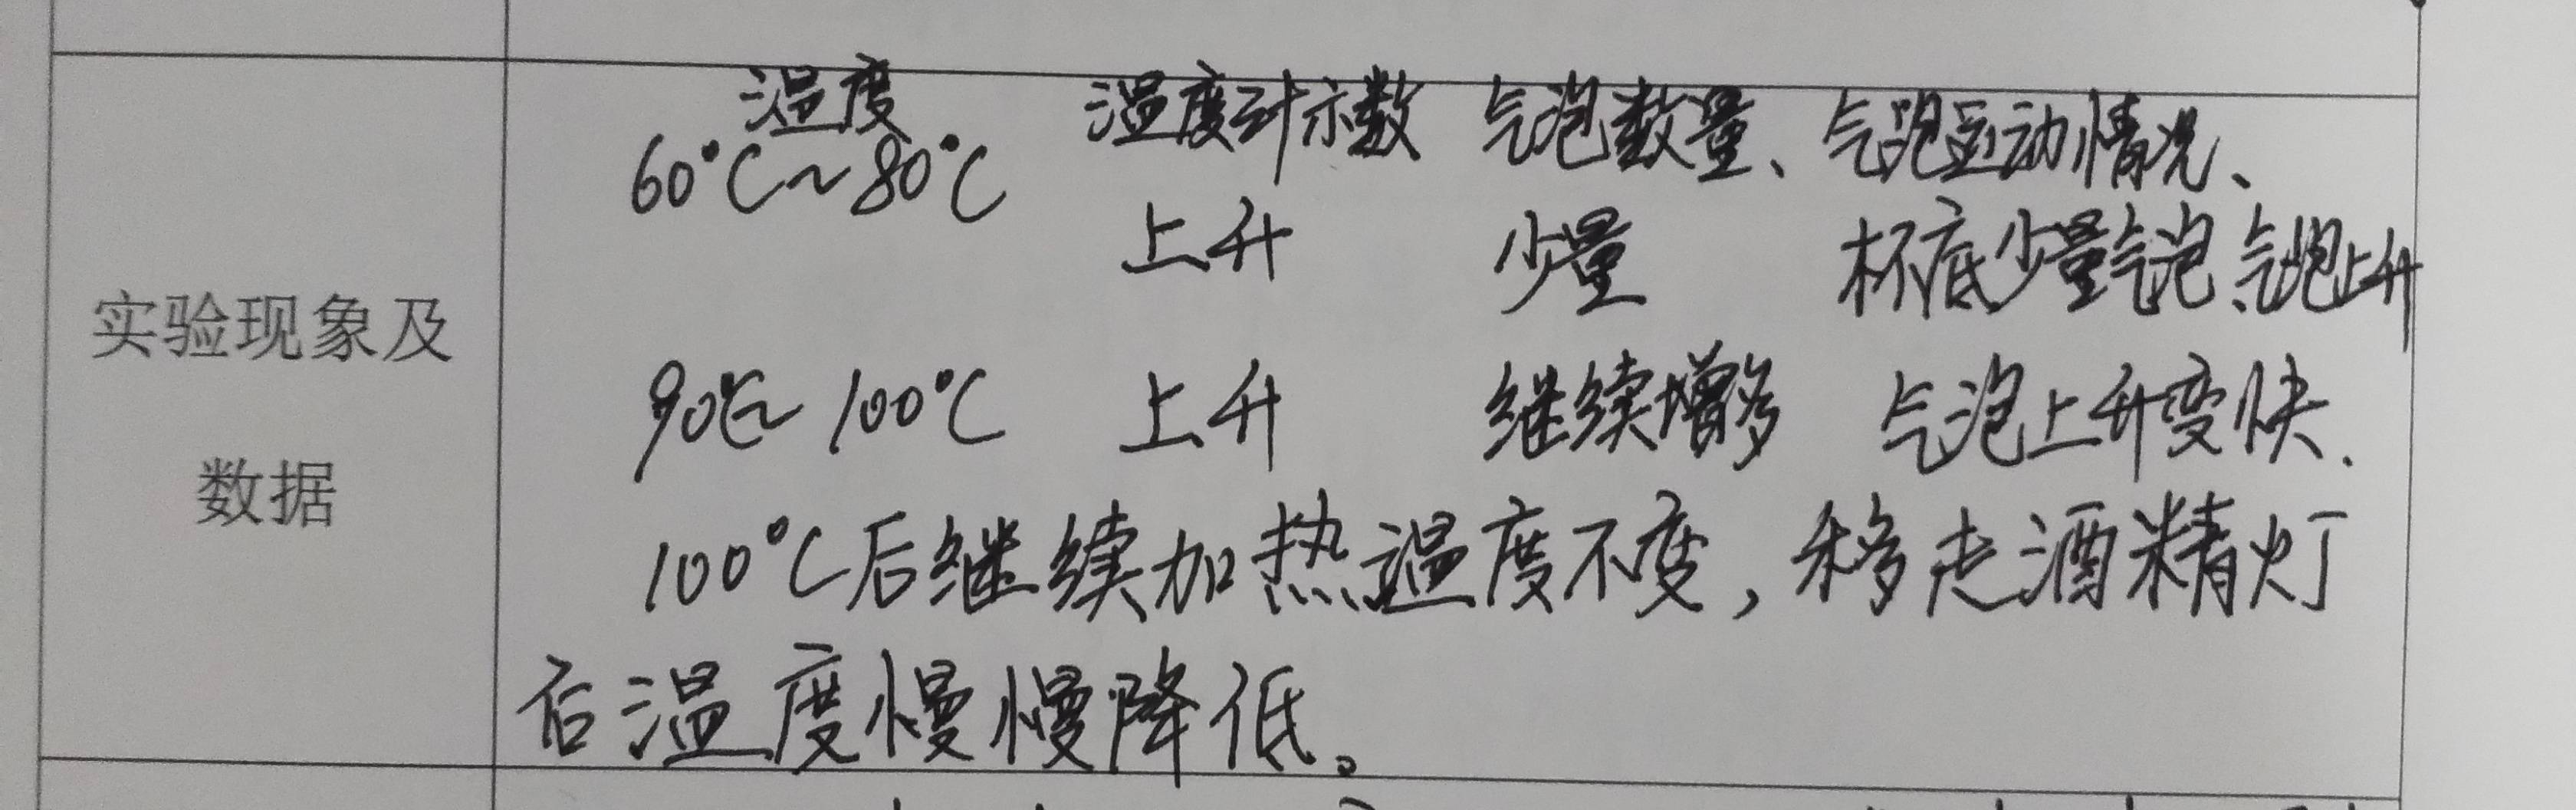 温度 温度计示数 气泡数量、气跑运动情况、
60°C~80°C 上升 少量 杯底少量气泡、气跑上升
实验现象及
90℃~100°C 上升 继续增多 气泡上升变快.
数据
100°C后继续加热温度不变，移走酒精灯
后温度慢慢降低。